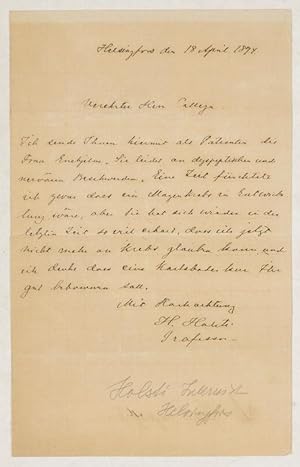 Helsingfors den 18 April 1894
Verehrter Herr College
Ich sende Ihnen hiermit als Patienten die
Frau. Sie leidet an dyspeptischen und
nervösen Beschwerden. Eine Zeit fürchtete
ich zwar dass ein Magenkrebs in Entwick
lung wäre, aber Sie hat sich wieder in der
letzten Zeit so viel erholt, dass ich jetzt
nicht mehr an Krebs glauben kann und
ich denke dass eine Karlsbader kur Ihr
gut bekommen soll.
Mit Hochachtung
H. Holsti
Professor
Holsti
Helsingfors